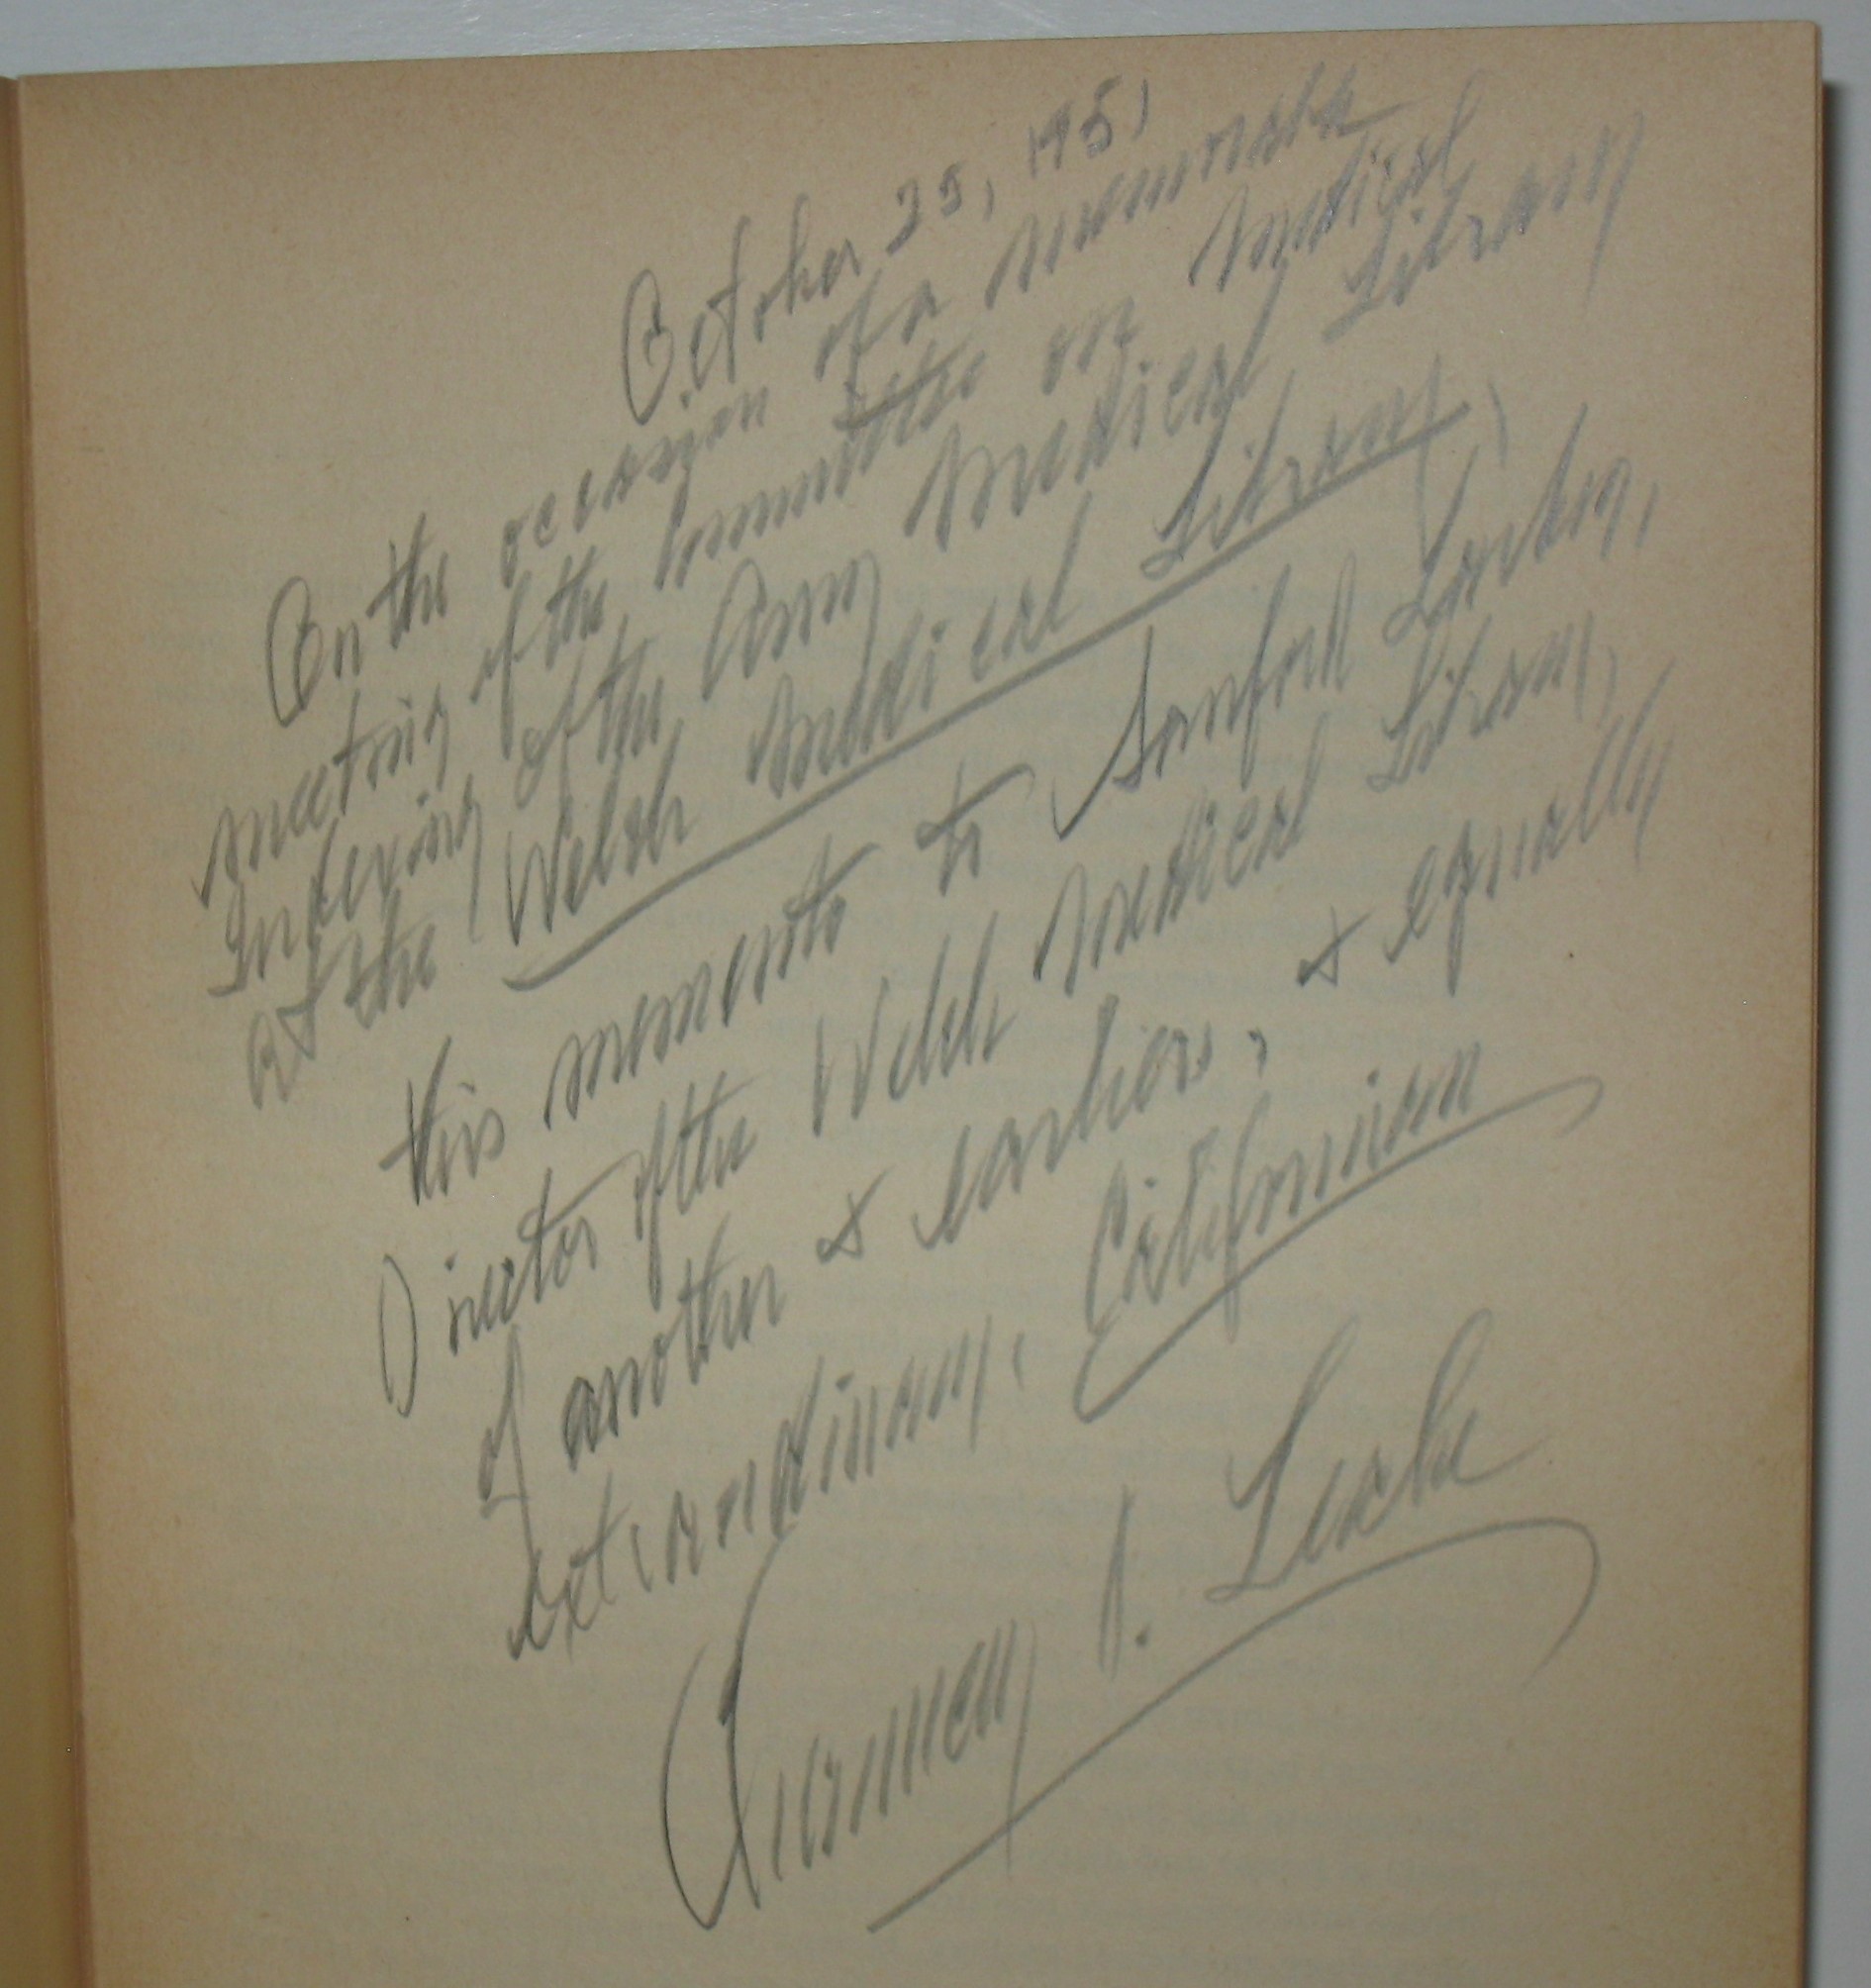 October 25, 1951
On the occasion of a memorable
meeting of the Committee on Medical
Indexing of the Army Medical Library
at the Welch Medical Library,
this memento to Sanford Larkey,
Director of the Welch Medical Library,
of another & earlier, & equally
extraordinary, Californian
Chauncey D. Leake